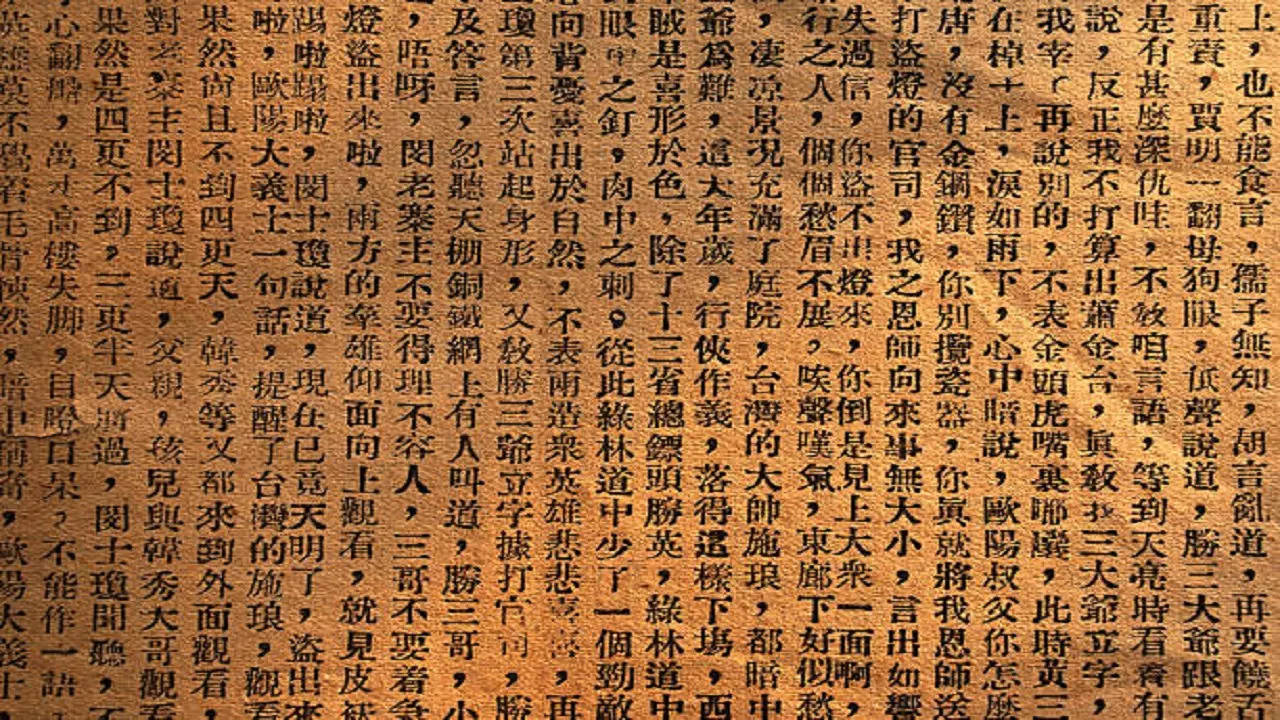 上，也不能食言，孺子無知，胡言亂道，再要饒舌
重責，賈明一翻母狗眼，低聲說道，勝三大爺跟老
是有甚麼深仇哇，不效咱言語，等到天亮時看看有
說，反正我不打算出蕭金台，眞敎我三大爺立字，
我宰 再說別的，不表金頭虎嘴裏嘟囔，此時黃三
在棹子上，淚如雨下，心中暗說，歐陽叔父你怎麼
唐，沒有金鋼鑽，你別攬瓷器，你眞就將我恩師送
打盜燈的官司，我之恩師向來事無大小，言出如響
失過信，你盜不出燈來，你倒是見上大衆一面啊，
行之人，個個愁眉不展，唉聲嘆氣，東廊下好似愁
，淒凉景況充滿了庭院，台灣的大帥施琅，都暗中
爺爲難，這大年歲，行俠作義，落得這樣下塲，西
賊是喜形於色，除了十三省總鏢頭勝英，綠林道中
眼中之釘，肉中之刺。從此綠林道中少了一個勁敵
心向背憂喜出於自然，不表兩造衆英雄悲悲喜喜，再
瓊第三次站起身形，又敎勝三爺立字據打官司，勝
及答言，忽聽天棚銅鐵網上有人叫道，勝三哥，小
，唔呀，閔老寨主不要得理不容人，三哥不要着急
燈盜出來啦，兩方的羣雄仰面向上觀看，就見皮
踢啦蹋啦，閔士瓊說道，現在已竟天明了，盜出來
啦，歐陽大義士一句話，提醒了台灣的施琅，觀看
果然尙且不到四更天，韓秀等又都來到外面觀看
對 寨主閔士瓊說道，父親，孩兒與韓秀大哥觀看
果然是四更不到，三更半天將過，閔士瓊聞聽，不
心翻 ，萬丈高樓失脚，目瞪口呆，不能作一語
英雄莫不 毛骨悚然，暗中稱奇，歐陽大義士